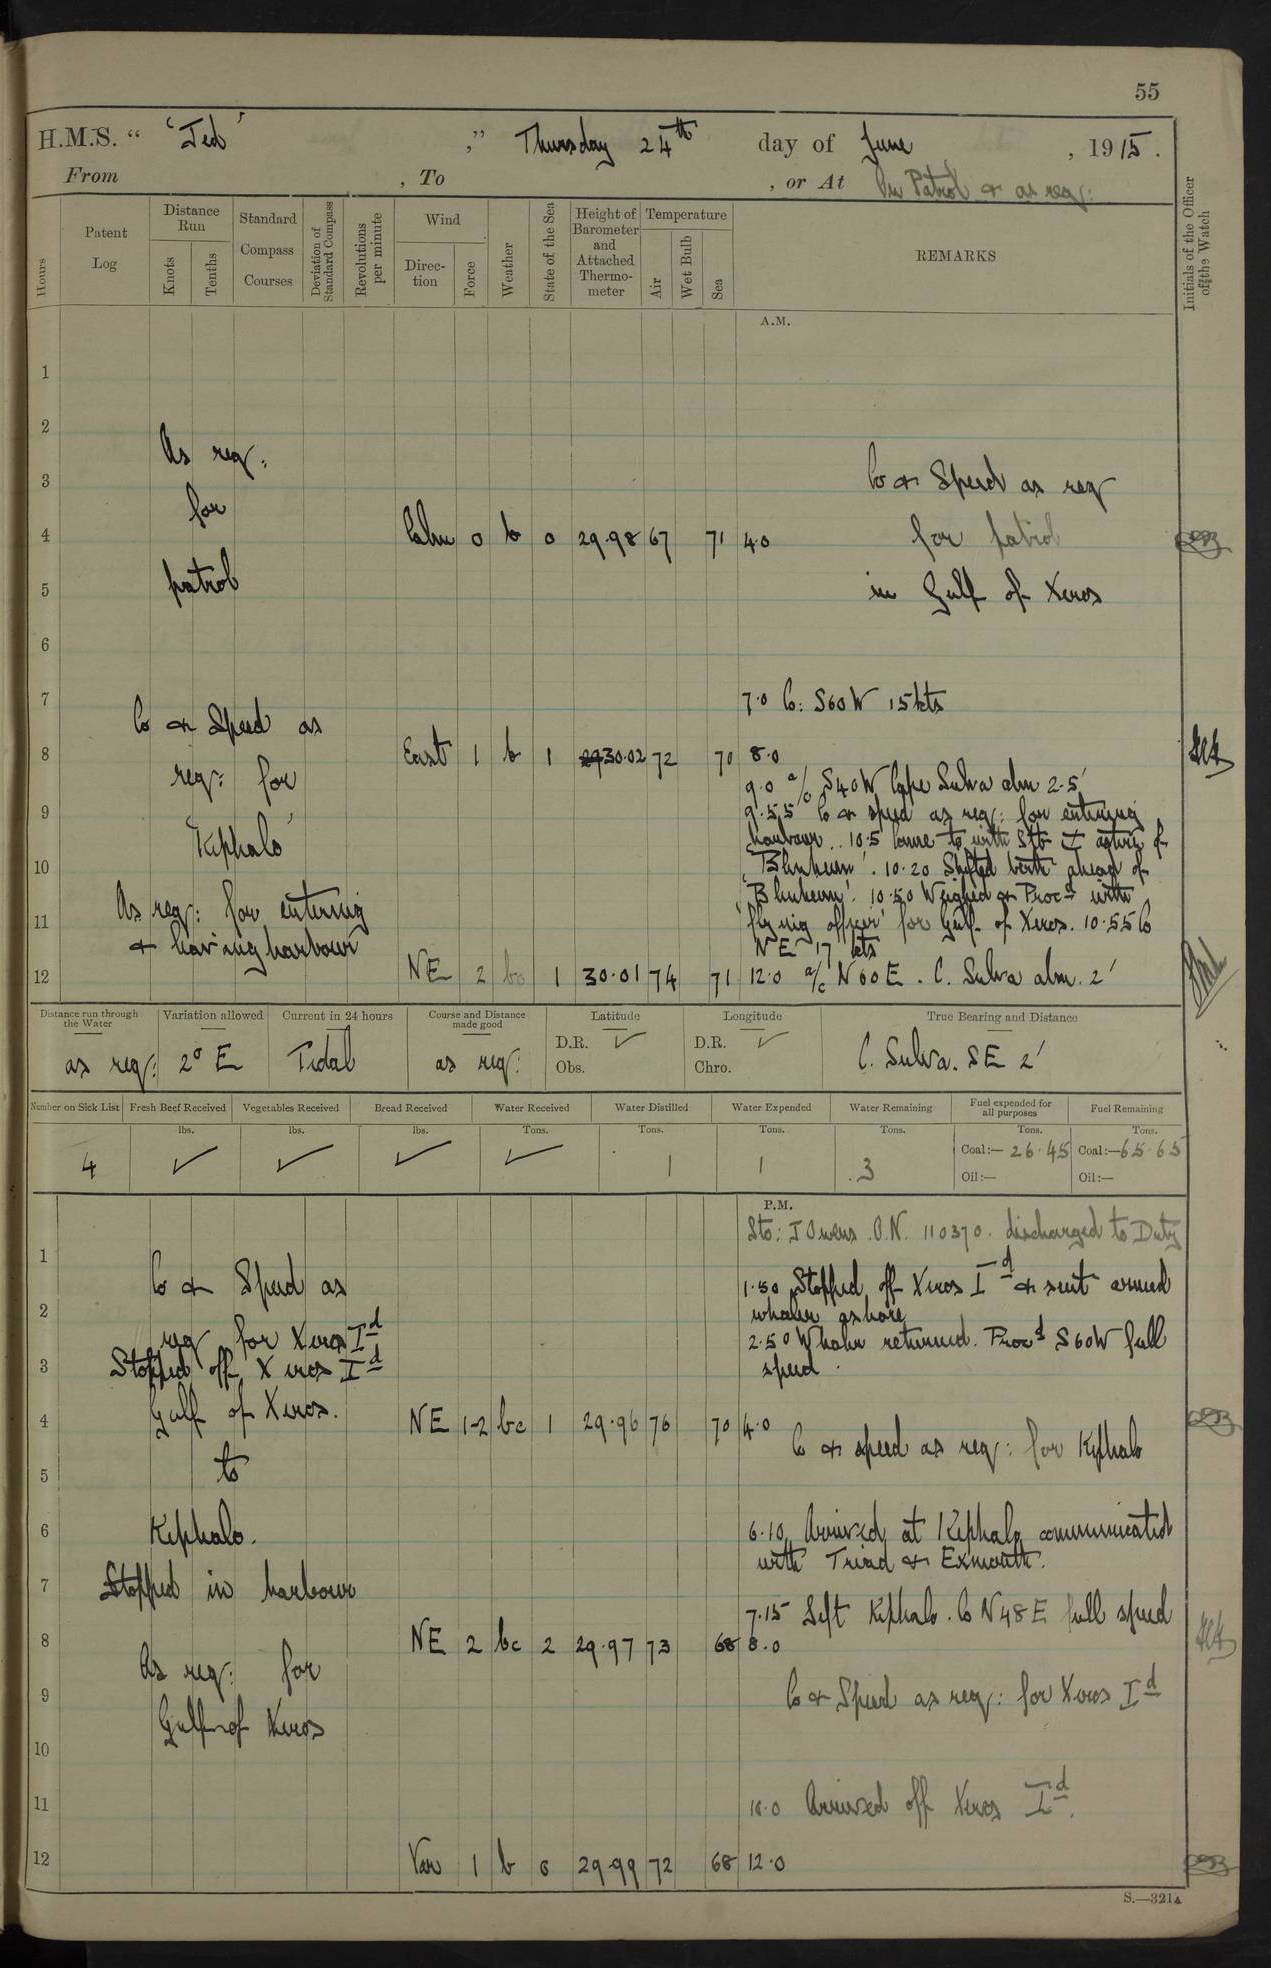 55
H.M.S. " 'Jed' ," Thursday 24th day of June , 1915.
From , To , or At On Patrol & as req:
Hours
Patent Log
Distance Run
Knots
Tenths
Standard Compass Courses
Deviation of Standard Compass
Revolutions per minute
Wind
Direction
Force
Weather
State of the Sea
Height of Barometer and Attached Thermometer
Temperature
Air
Wet Bulb
Sea
REMARKS
Initials of the Officer of the Watch
A.M.
1
2
As req:
3 Co & Speed as req
for
4 Calm 0 b 0 29.98 67 71 4.0 for patrol
patrol
5 in Gulf of Xeros
6
7 7.0 Co: S60W 15kts
Co & Speed as
8 East 1 b 1 30.02 72 70 8.0
req: for
9.0 a/c S40W Cape Sulva abm 2.5'
9 9.55 Co & speed as req: for entering
'Kephalo'
harbour .. 10.5 Came to with Stb
10 'Blenheim'. 10.20 Shifted berth ahead of
'Blenheim'. 10.50 Weighed & Procd with
As req: for entering
11 'flying officer' for Gulf of Xeros. 10.55 Co
& leaving harbour
NE 17 kts
12 NE 2 bc 1 30.01 74 71 12.0 a/c N60E. C. Sulva abm. 2'
Distance run through the Water
Variation allowed
Current in 24 hours
Course and Distance made good
Latitude
Longitude
True Bearing and Distance
as req: 2° E Tidal as req: D.R. ✓ D.R. ✓ C. Sulva. SE 2'
Obs. Chro.
Number on Sick List
Fresh Beef Received
Vegetables Received
Bread Received
Water Received
Water Distilled
Water Expended
Water Remaining
Fuel expended for all purposes
Fuel Remaining
lbs. lbs. lbs. Tons. Tons. Tons. Tons. Tons. Tons.
4 ✓ ✓ ✓ ✓ 1 1 3 Coal:— 26.45 Coal:— 65.65
Oil:— Oil:—
P.M.
Sto: J Owens. O.N. 110370. discharged to Duty
1
Co & Speed as 1.50 Stopped off Xeros Id & sent armed
2 whaler ashore
req for Xeros Id 2.50 Whaler returned. Procd S60W full
3 Stopped off Xeros Id speed.
Gulf of Xeros.
4 NE 1-2 bc 1 29.96 76 70 4.0
Co & speed as req: for Kephalo
to
5
6 Kephalo. 6.10 Arrived at Kephalo communicated
with Triad & Exmouth.
7 Stopped in harbour
7.15 Left Kephalo. Co N48E full speed
8 NE 2 bc 2 29.97 73 68 8.0
As req: for
9 Co & Speed as req: for Xeros Id
Gulf of Xeros
10
11 Arrived off Xeros Id.
12 Var 1 b 0 29.99 72 68 12.0
S.—321A